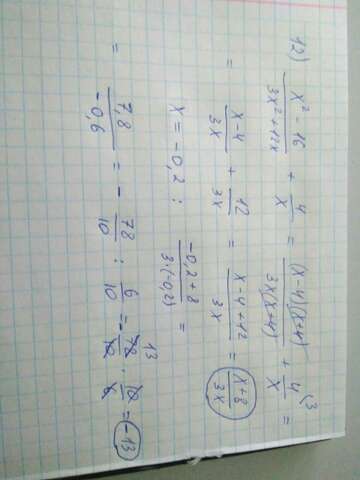 12) \frac{x^2 - 16}{3x^2 + 12x} + \frac{4}{x} = \frac{(x-4)(x+4)}{3x(x+4)} + \frac{4}{x}^{\backslash 3} =
= \frac{x-4}{3x} + \frac{12}{3x} = \frac{x-4+12}{3x} = \frac{x+8}{3x}
x = -0,2 : \frac{-0,2+8}{3 \cdot (-0,2)} =
= \frac{7,8}{-0,6} = - \frac{78}{10} : \frac{6}{10} = - \frac{78^{13}}{10} \cdot \frac{10}{6} = -13